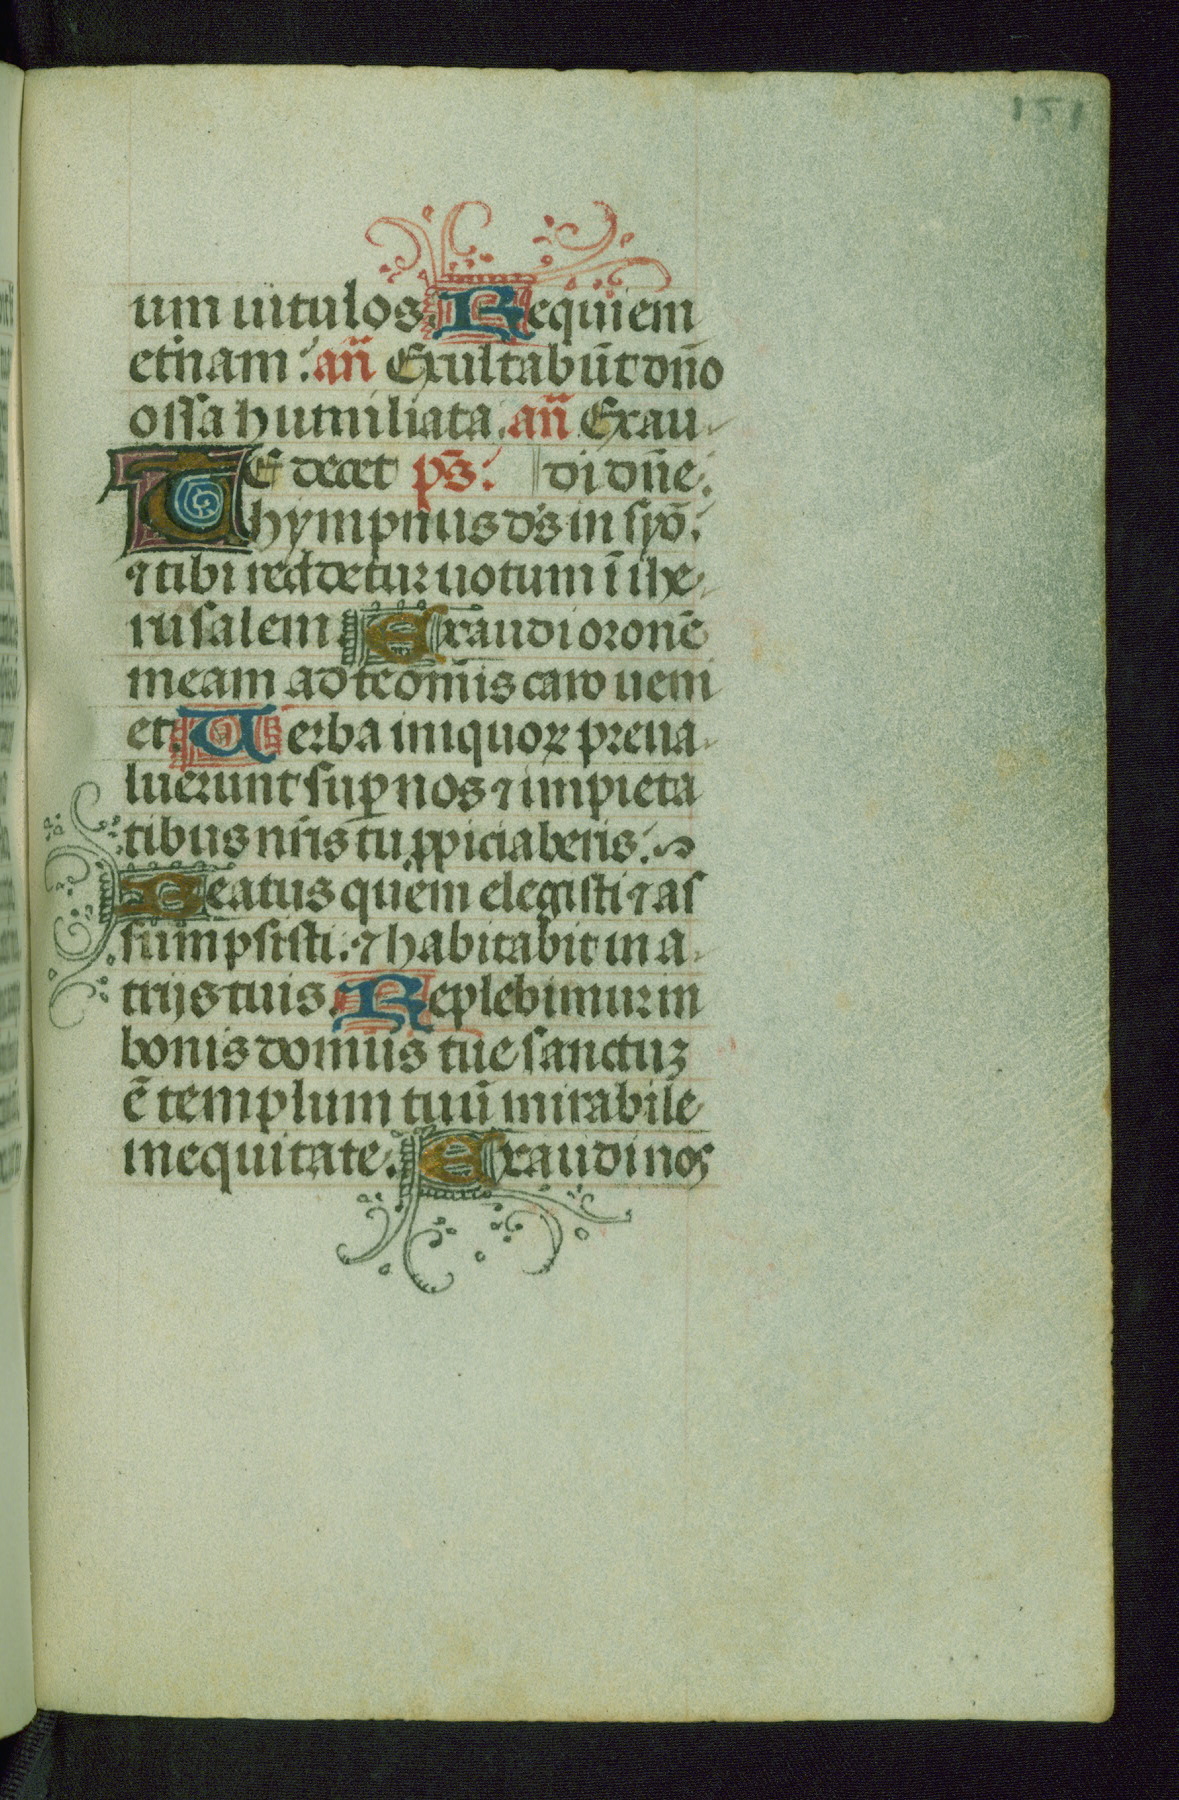 151
um uitulos. Requiem
etn̄am. an̄ Exultabūt dn̄o
ossa humiliata. an̄ Exau
TE decet ps̄. di dn̄e.
hympnus ds̄ in syō.
⁊ tibi reddetur uotum ī ihe
rusalem. Exaudi oronē
meam ad te om̄is caro ueni
et. Uerba iniquoꝝ preua
luerunt suꝑ nos ⁊ impieta
tibus nr̄is tu ꝓpiciaberis.
Beatus quem elegisti ⁊ as
sumpsisti. ⁊ habitabit in a
trijs tuis. Replebimur in
bonis domus tue sanctuꝫ
ē templum tuū mirabile
in equitate. Exaudi nos